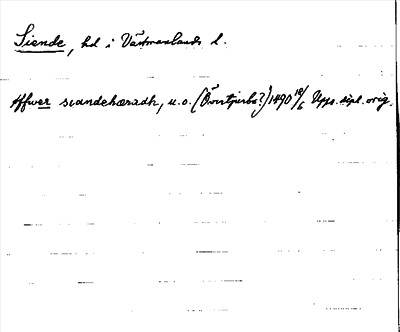 Siende, hd i Västmanlands l.
Affwer siandehæradh, u.o. (Övertjurbo?) 1490 18/6 Upps. dipl. orig.